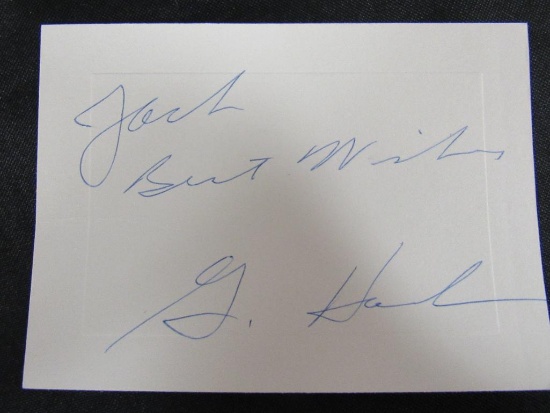 Jack
Best Wishes
G.